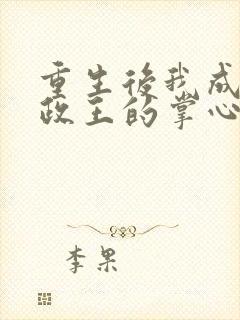 重生後我成
政王的掌心
李果